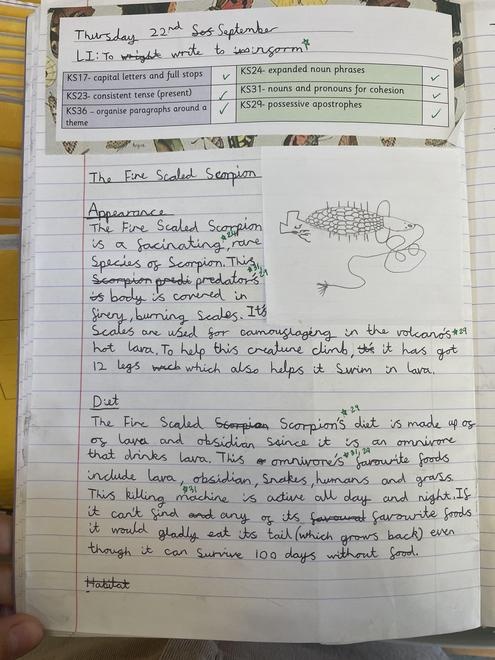 Thursday 22nd Ses September
LI: To wright write to is inform*
KS17- capital letters and full stops ✓ KS24- expanded noun phrases ✓
KS23- consistent tense (present) ✓ KS31- nouns and pronouns for cohesion ✓
KS36 – organise paragraphs around a theme ✓ KS29- possessive apostrophes ✓
The Fire Scaled Scorpion
Appearance
The Fire Scaled Scorpion
is a facinating, rare *24
Species of Scorpion. This
Scorpion predi predator's *31, 29
is body is covered in
firery, burning Scales. It's
Scales are used for camouflaging in the volcano's *29
hot lava. To help this creature climb, it's it has got
12 legs which also helps it Swim in lava.
Diet
The Fire Scaled Scorpion Scorpion's *29 diet is made up of
of lava and obsidian Ssince it is an omnivore
that drinks lava. This omnivore's *31, 29 favourite foods
include lava, obsidian, Snakes, humans and grass.
This killing machine *31 is active all day and night. If
it can't find and any of its favourad favourite foods
it would gladly eat its tail (which grows back) even
though it can Survive 100 days without food.
Habitat